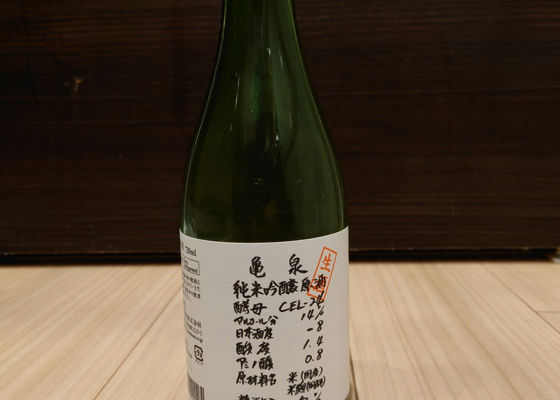 720ml
亀 泉
生酒
純米吟醸原酒
酵母 CEL-24
アルコール分 14%
日本酒度 -8
酸度 1.4
アミノ酸 0.8
原材料名 米(国産)
米麹(国産米)